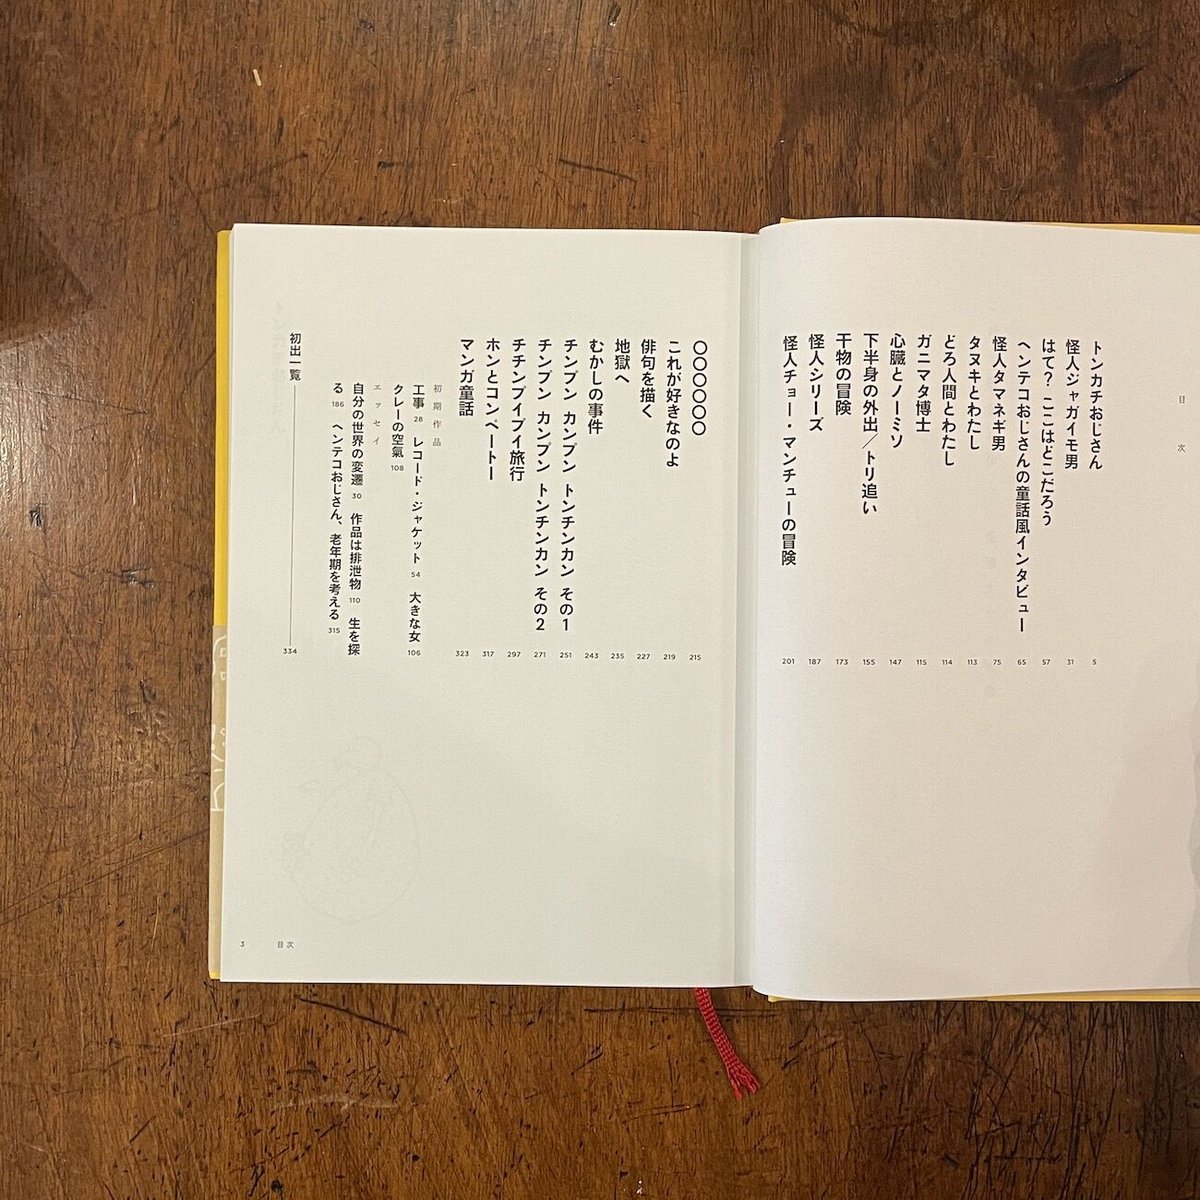 目次
トンカチおじさん 5
怪人ジャガイモ男 31
はて？ ここはどこだろう 57
ヘンテコおじさんの童話風インタビュー 65
怪人タマネギ男 75
タヌキとわたし 113
どろ人間とわたし 114
ガニマタ博士 115
心臓とノーミソ 147
下半身の外出／トリ追い 155
干物の冒険 173
怪人シリーズ 187
怪人チョー・マンチューの冒険 201
〇〇〇〇〇〇 215
これが好きなのよ 219
俳句を描く 227
地獄へ 235
むかしの事件 243
チンプン カンプン トンチンカン その1 251
チンプン カンプン トンチンカン その2 271
チチンプイプイ旅行 297
ホンとコンペートー 317
マンガ童話 323
初期作品
工事 28 レコード・ジャケット 54 大きな女 106
クレーの空氣 108
エッセイ
自分の世界の変遷 30 作品は排泄物 110 生を探
る 186 ヘンテコおじさん、老年期を考える 315
初出一覧 334
3 目次